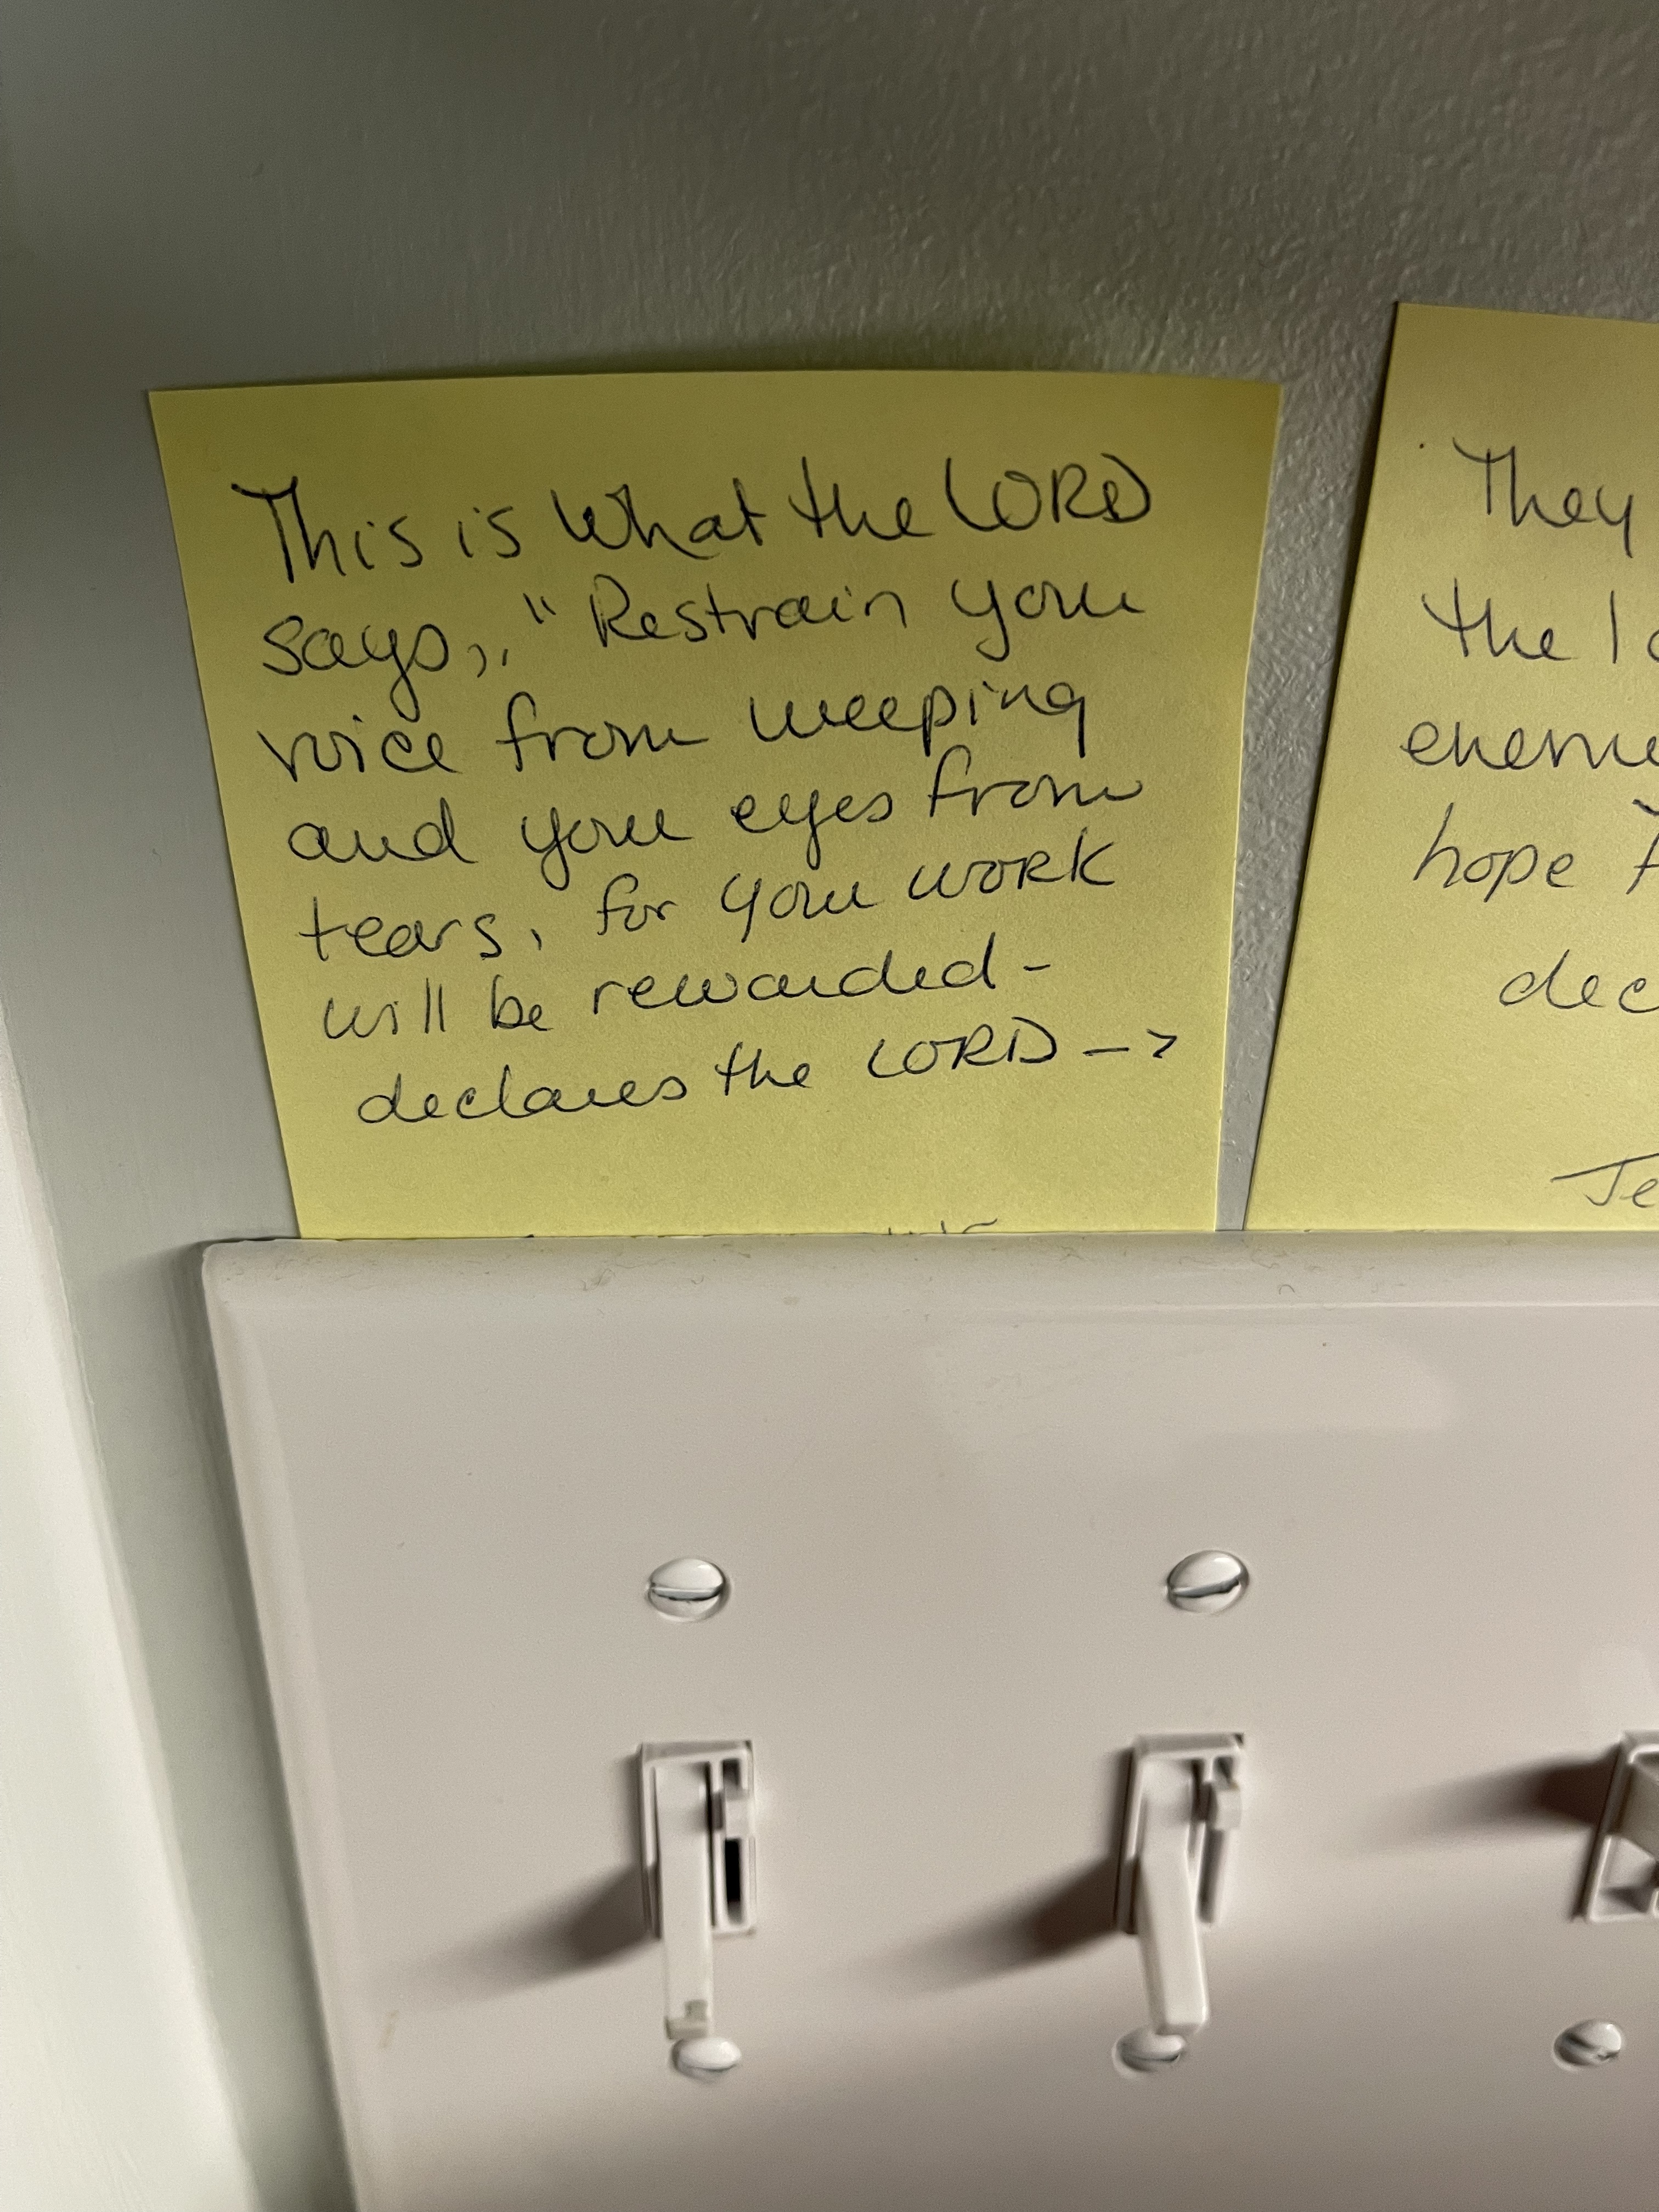 This is What the LORD
says,. "Restrain your
voice from weeping
and your eyes from
tears, for your work
will be rewarded -
declares the LORD -->
They
the
hope